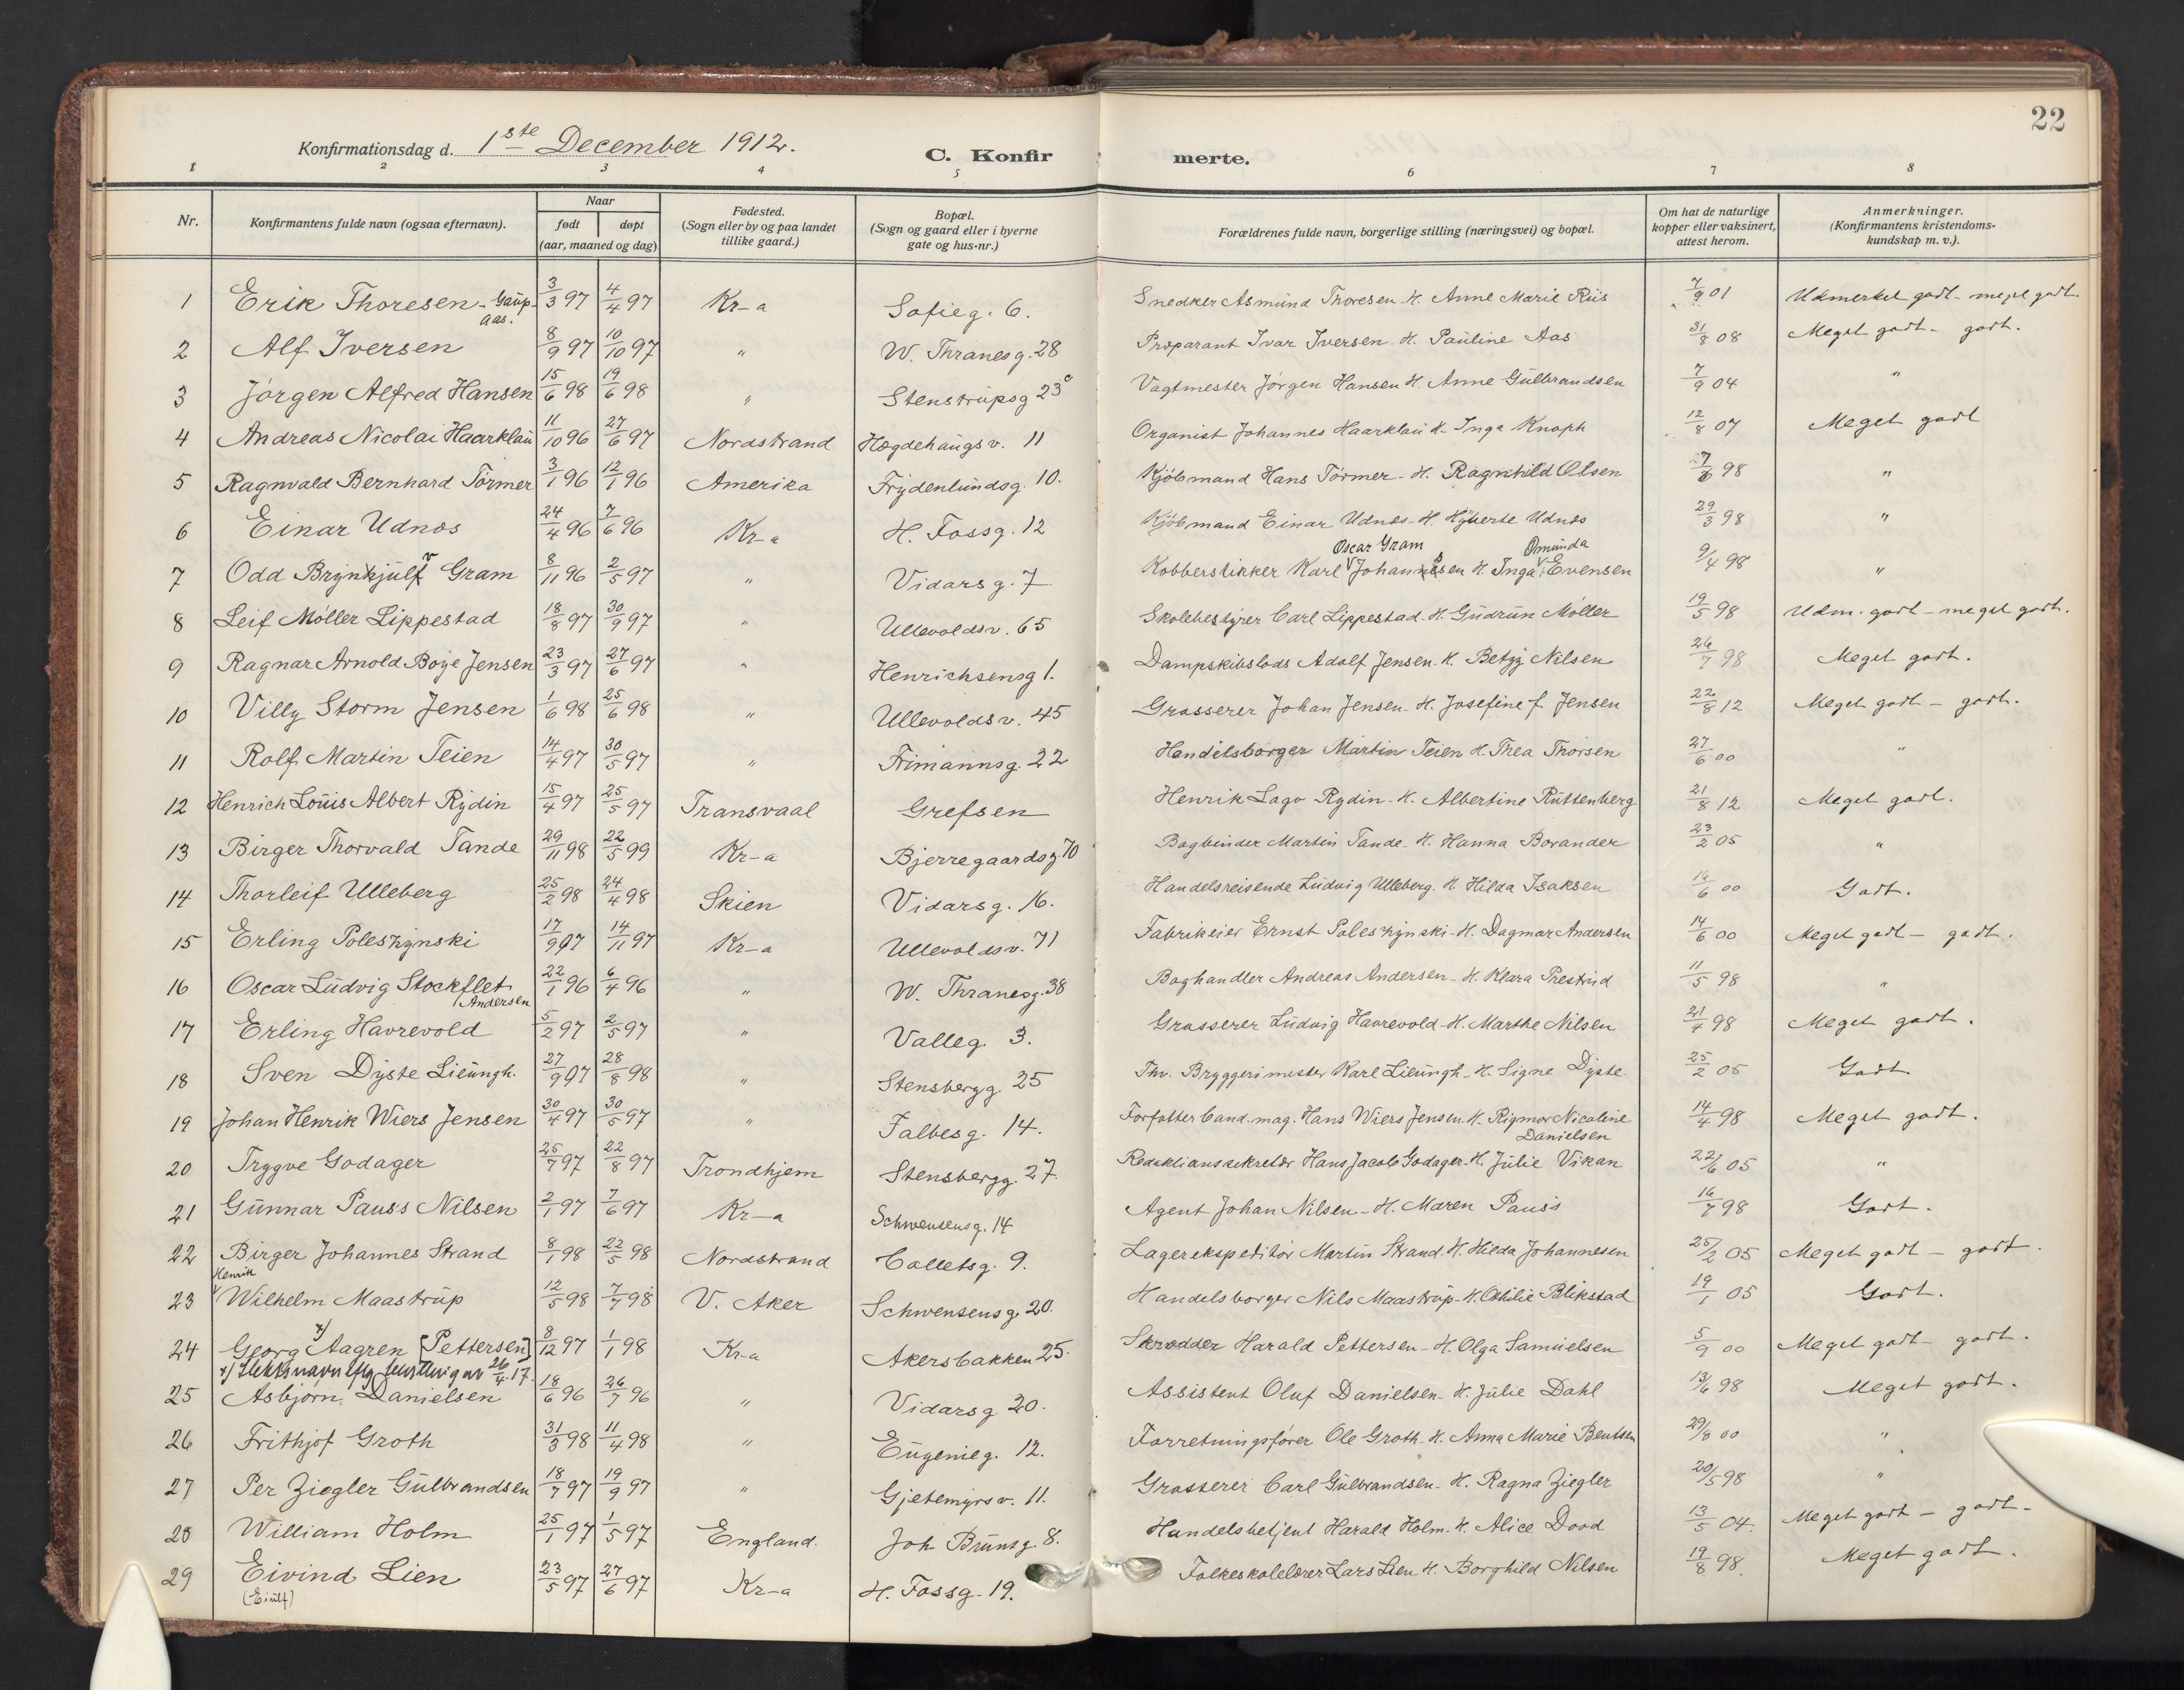 22
Konfirmationsdag d. 1ste December 1912.
C. Konfir merte.
1 2 3 4 5 6 7 8
Nr. Konfirmantens fulde navn (ogsaa efternavn). Naar født døpt (aar, maaned og dag) Fødested. (Sogn eller by og paa landet tillike gaard.) Bopæl. (Sogn og gaard eller i byerne gate og hus-nr.) Forældrenes fulde navn, borgerlige stilling (næringsvei) og bopæl. Om hat de naturlige kopper eller vaksinert, attest herom. Anmerkninger. (Konfirmantens kristendoms-kundskap m. v.).
1 Erik Thoresen-Gaup-aas. 3/3 97 4/4 97 Kr-a Sofieg. 6. Snedker Asmund Thoresen H. Anne Marie Riis 7/9 01 Udmerket godt - meget godt.
2 Alf Iversen 8/9 97 10/10 97 " W. Thranesg. 28 Preparant Ivar Iversen H. Pauline Aas 31/8 08 Meget godt - godt.
3 Jørgen Alfred Hansen 15/6 98 19/6 98 " Stenstrupsg 23c Vagtmester Jørgen Hansen H. Anne Gulbrandsen 7/9 04 "
4 Andreas Nicolai Haarklau 11/10 96 27/6 97 Nordstrand Hægdehaugsv. 11 Organist Johannes Haarklau H. Inga Knoph 12/8 07 Meget godt
5 Ragnvald Bernhard Tørmer 3/1 96 12/1 96 Amerika Frydenlundsg. 10. Kjøbmand Hans Tørmer - H. Ragnhild Olsen 98 "
6 Einar Udnæs 24/4 96 7/6 96 Kr-a H. Fossg. 12 Kjøbmand Einar Udnæs - H. Udnæs 29/3 98 "
7 Odd Brynhjulf v Gram 8/11 96 2/5 97 " Vidarsg. 7. Kobberstikker Karl Oscar Gram Johannesen H. Inga Omunda Evensen 9/4 98 "
8 Leif Møller Lippestad 18/8 97 30/9 97 " Ullevoldsv. 65 Skolebestyrer Carl Lippestad H. Gudrun Møller 19/5 98 Udm. godt - meget godt.
9 Ragnar Arnold Boye Jensen 23/3 97 27/6 97 " Henrichsensg 1. Dampskibslods Adolf Jensen H. Betzy Nilsen 26/7 98 Meget godt.
10 Villy Storm Jensen 1/6 98 25/6 98 " Ullevoldsv. 45 Grosserer Johan Jensen H. Josefine f Jensen 22/8 12 Meget godt - godt.
11 Rolf Martin Teien 14/4 97 30/5 97 " Frimannsg. 22 Handelsborger Martin Teien H. Thea Thorsen 27/6 00 "
12 Henrich Louis Albert Rydin 15/4 97 25/5 97 Transvaal Grefsen Henrik Lago Rydin - H. Albertine Ruttenberg 21/8 12 Meget godt.
13 Birger Thorvald Tande 29/11 98 22/5 99 Kr-a Bjerregaardsg. 70 Bogbinder Martin Tande H. Hanna Borander 23/2 05 "
14 Thorleif Ulleberg 25/2 98 24/4 98 Skien Vidarsg. 16. Handelsreisende Ludvig Ulleberg H. Hilda Isaksen 16/6 00 Godt.
15 Erling Poleszynski 17/9 97 14/11 97 Kr-a Ullevoldsv. 71 Fabrikeier Ernst Poleszynski - H. Dagmar Andersen 14/6 00 Meget godt - godt.
16 Oscar Ludvig Stockflet Andersen 22/1 96 6/4 96 " W. Thranesg. 38 Boghandler Andreas Andersen - H. Klara Prestrud 11/5 98 "
17 Erling Havrevold 5/2 97 2/5 97 " Valleg. 3. Grosserer Ludvig Havrevold - H. Marthe Nilsen 21/4 98 Meget godt.
18 Sven Dyste Lieungh. 27/9 97 28/8 98 " Stensbergg. 25 Thv. Bryggerimester Karl Lieungh - H. Signe Dyste 25/2 05 Godt
19 Johan Henrik Wiers Jensen 30/4 97 30/5 97 " Falbesg. 14. Forfatter Cand. mag. Hans Wiers Jensen H. Rigmor Nicoline Danielsen 14/4 98 Meget godt.
20 Trygve Godager 25/7 97 22/8 97 Trondhjem Stensbergg. 27. Redaktionssekretær Hans Jacob Godager H. Julie Vikan 22/6 05 "
21 Gunnar Pauss Nilsen 2/1 97 7/6 97 Kr-a Schwensensg. 14 Agent Johan Nilsen - H. Maren Pauss 16/7 98 Godt.
22 Birger Johannes Strand 8/1 98 22/5 98 Nordstrand Colletsg. 9. Lagerekspeditør Martin Strand H. Hilda Johannesen 25/2 05 Meget godt - godt.
Henrik
23 Wilhelm Maastrup 12/5 98 7/7 98 V. Aker Schwensensg 20. Handelsborger Nils Maastrup - H. Othilie Blikstad 19/1 05 Godt.
24 Georg x) Aagren [Pettersen] 8/12 97 1/1 98 Kr-a Akersbakken 25. Skrædder Harald Pettersen - H. Olga Samuelsen 5/9 00 Meget godt - godt.
x) Slektsnavn 26/4 17.
25 Asbjørn Danielsen 18/6 96 26/7 96 " Vidarsg 20. Assistent Oluf Danielsen H. Julie Dahl 13/6 98 Meget godt.
26 Frithjof Groth 31/3 98 11/4 98 " Eugenieg. 12. Forretningsfører Ole Groth H. Anna Marie Bentsen 29/8 00 "
27 Per Ziegler Gulbrandsen 18/7 97 19/9 97 " Gjetemyrsv. 11. Grosserer Carl Gulbrandsen - H. Ragna Ziegler 20/5 98 "
28 William Holm 25/1 97 1/5 97 England. Joh Brunsg. 8. Handelsbetjent Harald Holm H. Alice Dood 13/5 04. Meget godt - godt -
29 Eivind Lien 23/5 97 27/6 97 Kr-a H. Fossg. 19. Folkeskolelærer Lars Lien H. Borghild Nilsen 19/8 98. Meget godt.
(Eiulf)